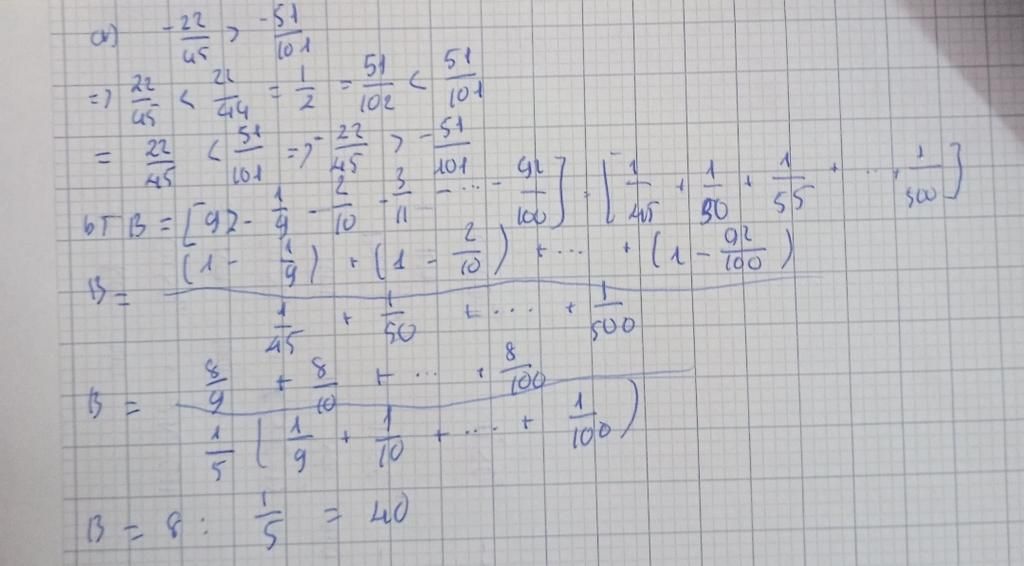 a) -22/45 > -51/101
=> 22/45 < 22/44 = 1/2 = 51/102 < 51/101
= 22/45 < 51/101 => -22/45 > -51/101
b) B = [92 - 1/9 - 2/10 - 3/11 - ... - 92/100] : [1/45 + 1/50 + 1/55 + ... + 1/500]
B = ((1 - 1/9) + (1 - 2/10) + ... + (1 - 92/100)) / (1/45 + 1/50 + ... + 1/500)
B = (8/9 + 8/10 + ... + 8/100) / (1/5 (1/9 + 1/10 + ... + 1/100))
B = 8 : 1/5 = 40